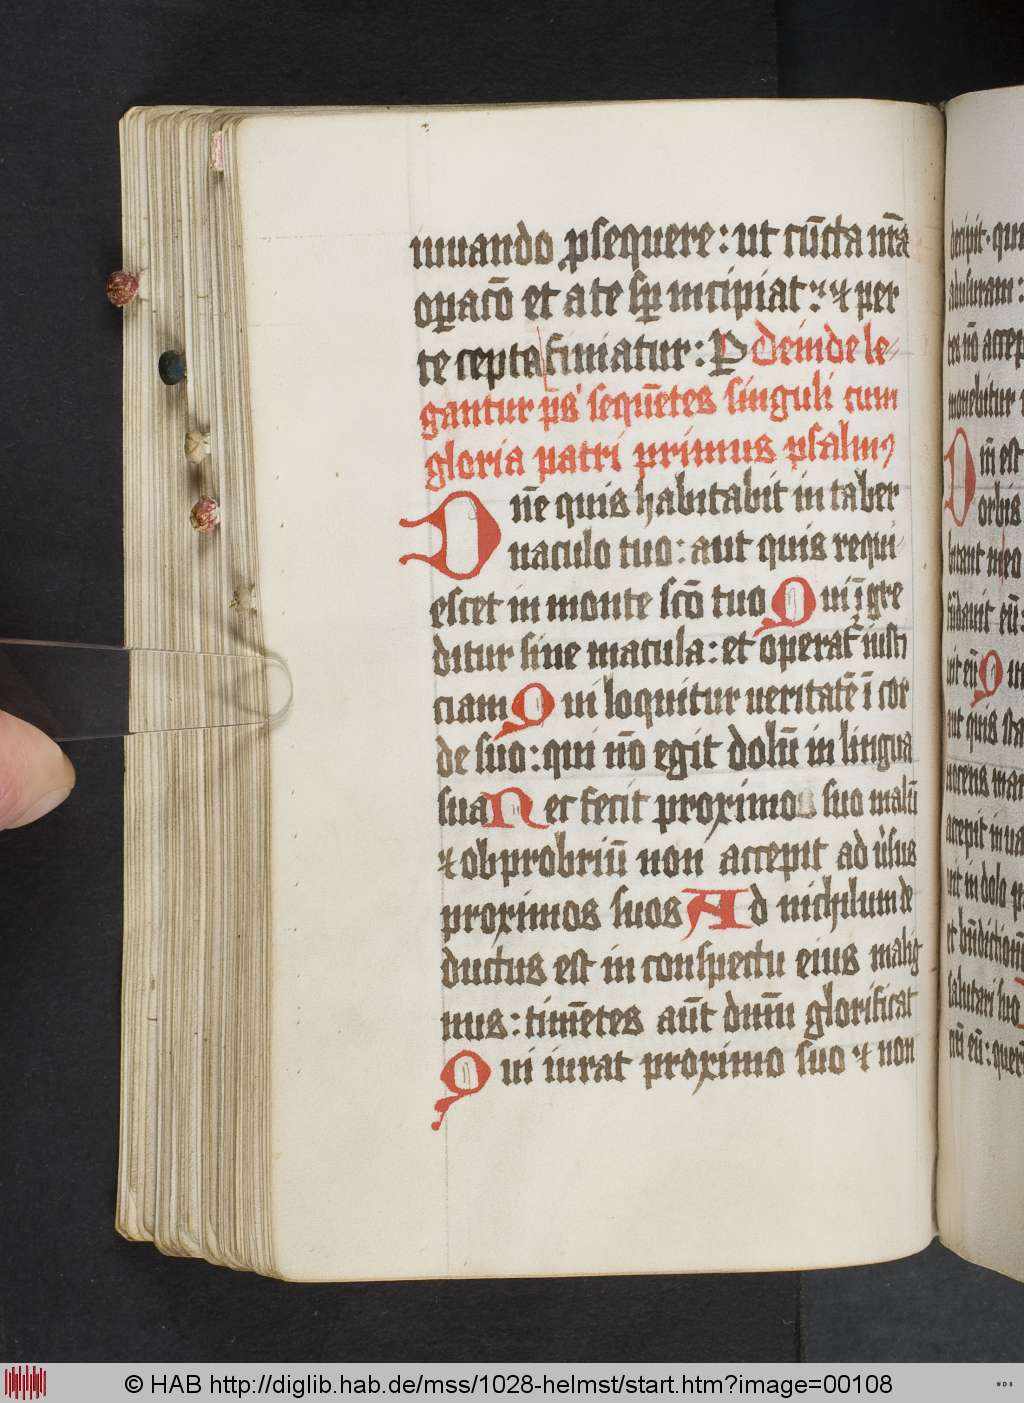 iuuando ꝓsequere: ut cūcta nr̄a
oꝑacō et a te sꝑ incipiat: ⁊ per
te cepta finiatur: P deinde le
gantur ps' sequētes singuli cum
gloria patri primus psalmꝰ
Dn̄e quis habitabit in taber
naculo tuo: aut quis requi
escet in monte scō tuo Qui īgre
ditur sine macula: et operat᷑ iusti
ciam Qui loquitur ueritatē ī cor
de suo: qui nō egit dolū in lingua
sua Nec fecit proximo suo malū
⁊ obprobriū non accepit aduʼsus
proximos suos Ad nichilum de
ductus est in conspectu eius malig
nus: timētes aūt dnm̄ glorificat
Qui iurat proximo suo ⁊ non
decipit. qui
tes nō accep
monebitur
Dn̄i est
orbis
fūdauit eū:
aut quis sta
nocens man
accepit in ua
uit in dolo p
salutari suo
© HAB http://diglib.hab.de/mss/1028-helmst/start.htm?image=00108